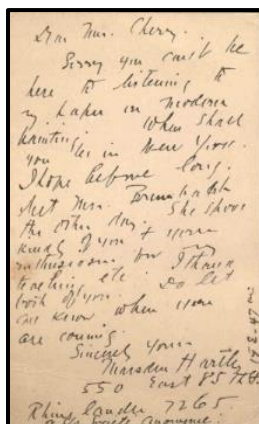 Dear Mrs. Cherry.
Sorry you can't be
here to listening to
my paper in modern
painting. When shall
you be in New York.
I hope before long.
Met Mrs.
the other day. She spoke
kindly of you + your
enthusiasm for my
teaching etc. Do let
me know when you
are coming.
Sincerely yours
Marsden Hartley
550 East 85th St
Rhinelander 7265.